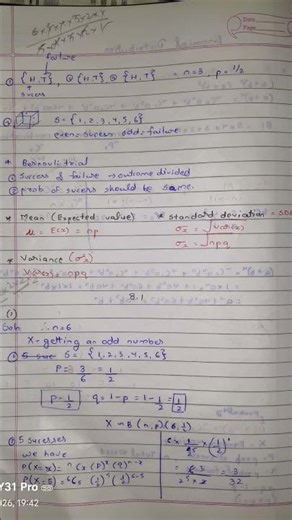 Date
Page
6x5x4x3x2x1
failure
① {H,T}, {H,T} {H,T} = n=3, p=1/2
sucess
Q S = {1,2,3,4,5,6}
even = sucess odd = failure
* Bernoulli trial
① success & failure → outcome divided
② prob of sucess should be same.
* Mean (Expected value) * standard deviation =
μ = E(x) = np σx = √var(x)
σx = √npq
* Variance (σ²x)
= npq
8.1
(1)
Soln ∴ n=6
X - getting an odd number
① S = {1,2,3,4,5,6}
P = 3/6 = 1/2
p = 1/2 q = 1-p = 1-1/2 = 1/2
X ~ B (n,p) (6, 1/2)
① 5 successes
we have
P(X=x) = nCx (P)^x (q)^n-x
P(X=5) = 6C5 (1/2)^5 (1/2)^6-5
= 3/32
Y31 Pro
2026, 19:42